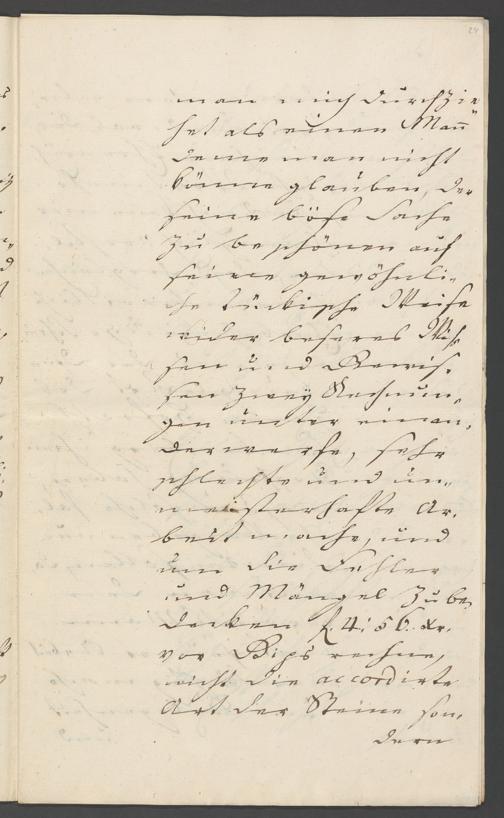 24
man mich durchzie
het als einen Mann
deme man nicht
könne glauben, der
seine böse Sache
zu beschönen auf
seine gewöhnli-
che tückische Weise
wider beseres Wis
sen und Gewis-
sen zwey Rechnun-
gen unter einan-
derwerfe, sehr
schlechte und un-
meisterhafte Ar-
beit mache, und
um die Fehler
und Mängel zu be
decken f. 4: 56. Xr.
vor Gips rechne,
nicht die accordirte
Art der Steine son-
dern